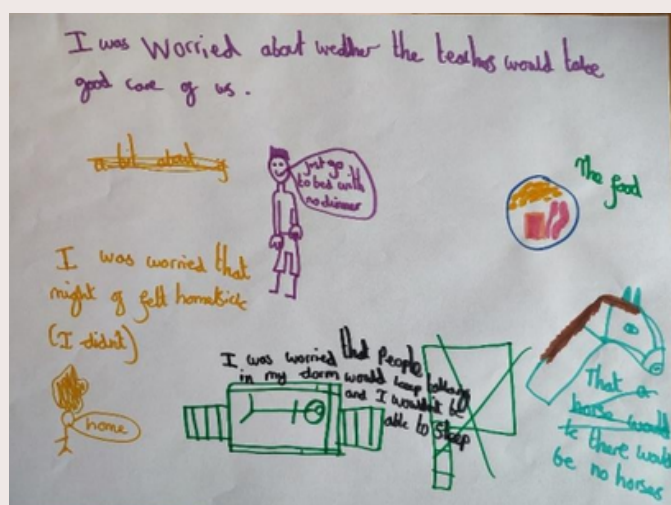 I was Worried about wedther the teachers would take
good care of us.
a bit about if
just go
to bed with
no dinner
The food
I was worried that
might of felt homesick
(I didn't)
home
I was worried that People
in my dorm would keep talking
and I wouldn't be
able to sleep
That a
horse would
be there would
be no horses